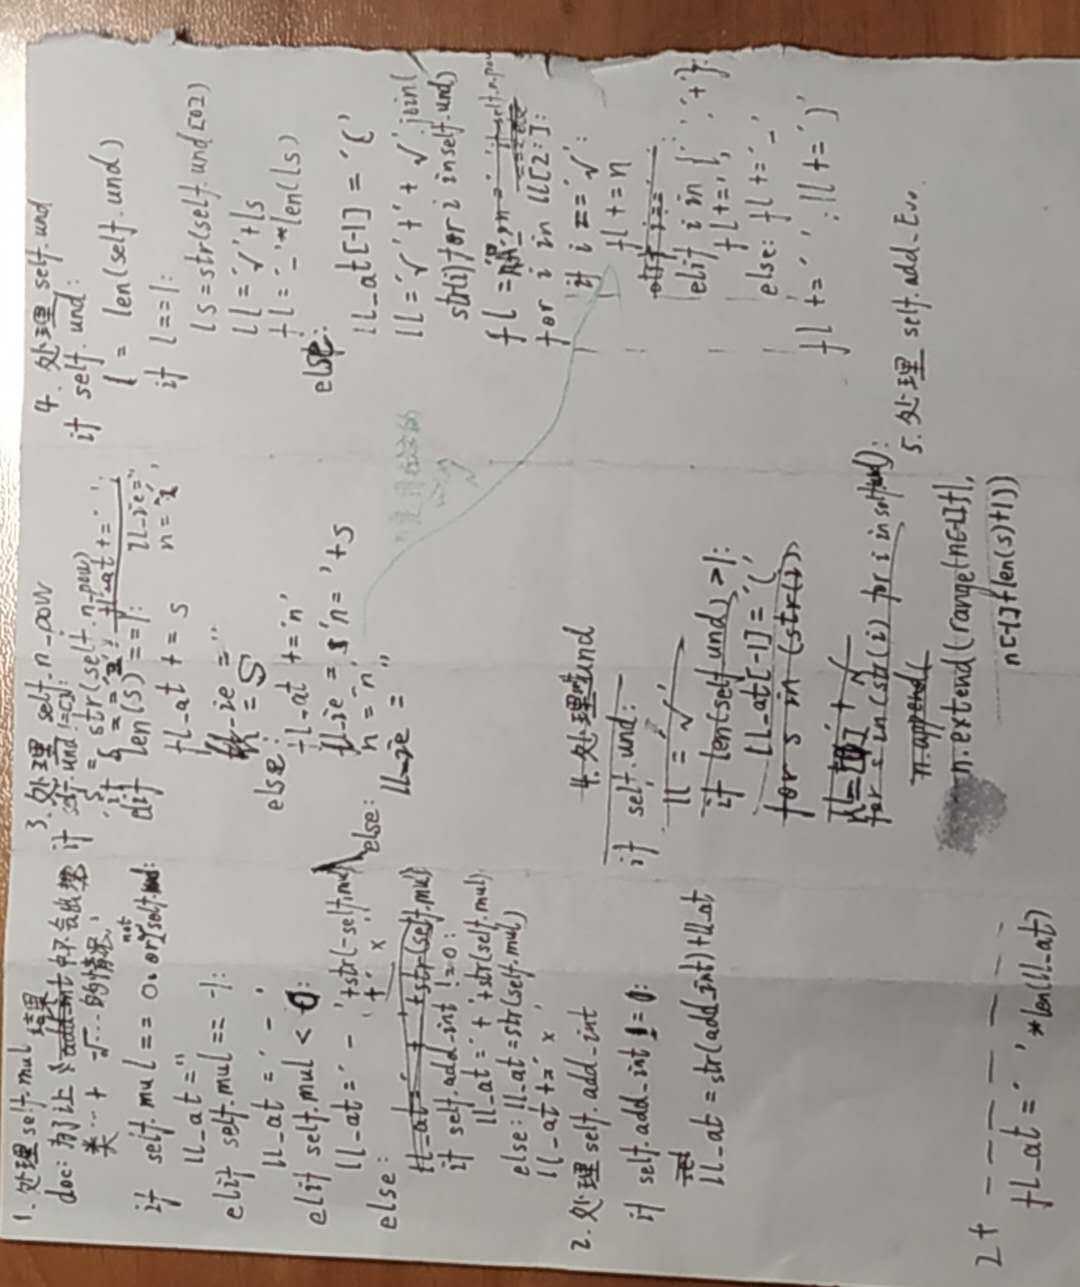 1. 处理 self.mul
doc: 为了让结果中不会出现
类…+√…的情况,
if self.mul == 0 or not self.und:
ll_at=''
elif self.mul == -1:
ll_at = ' - '
elif self.mul < 0:
ll_at = ' - '+str(-self.mul)
+' x '
else:
ll_at = ' + '+str(self.mul)
if self.add_int != 0:
ll_at = ' + '+str(self.mul)
else: ll_at=str(self.mul)
ll_at += ' x '
2. 处理 self.add_int
if self.add_int != 0:
ll_at = str(add_int)+ll_at
2+
fl_at = ' '*len(ll_at)
3. 处理 self.n_pow
if self.und != []:
s = str(self.n_pow)
elif len(s) == 1:
fl_at += s
ll_ze = ''
n = s
else:
fl_at += 'n'
ll_ze = ' n = '+s
n = 'n'
else:
ll_ze = ''
4. 处理 und
if self.und:
ll = '√'
if len(self.und) > 1:
ll_at[-1] = '('
for s in (str(i))
for s in (str(i) for i in self.und):
n.append(
n.extend(range(n[-1]+1,
n[-1]+len(s)+1))
4. 处理 self.und
if self.und:
l = len(self.und)
if l == 1:
ls = str(self.und[0])
ll = '√'+ls
fl = '_'*len(ls)
else:
ll_at[-1] = '('
ll = '√'+'+√'.join(
str(i) for i in self.und)
for i in ll[2:]:
if i == '√':
fl += n
elif i in {' ', '+'}:
fl += ' '
else: fl += '_'
fl += ' '; ll += ')'
5. 处理 self.add_Evo.